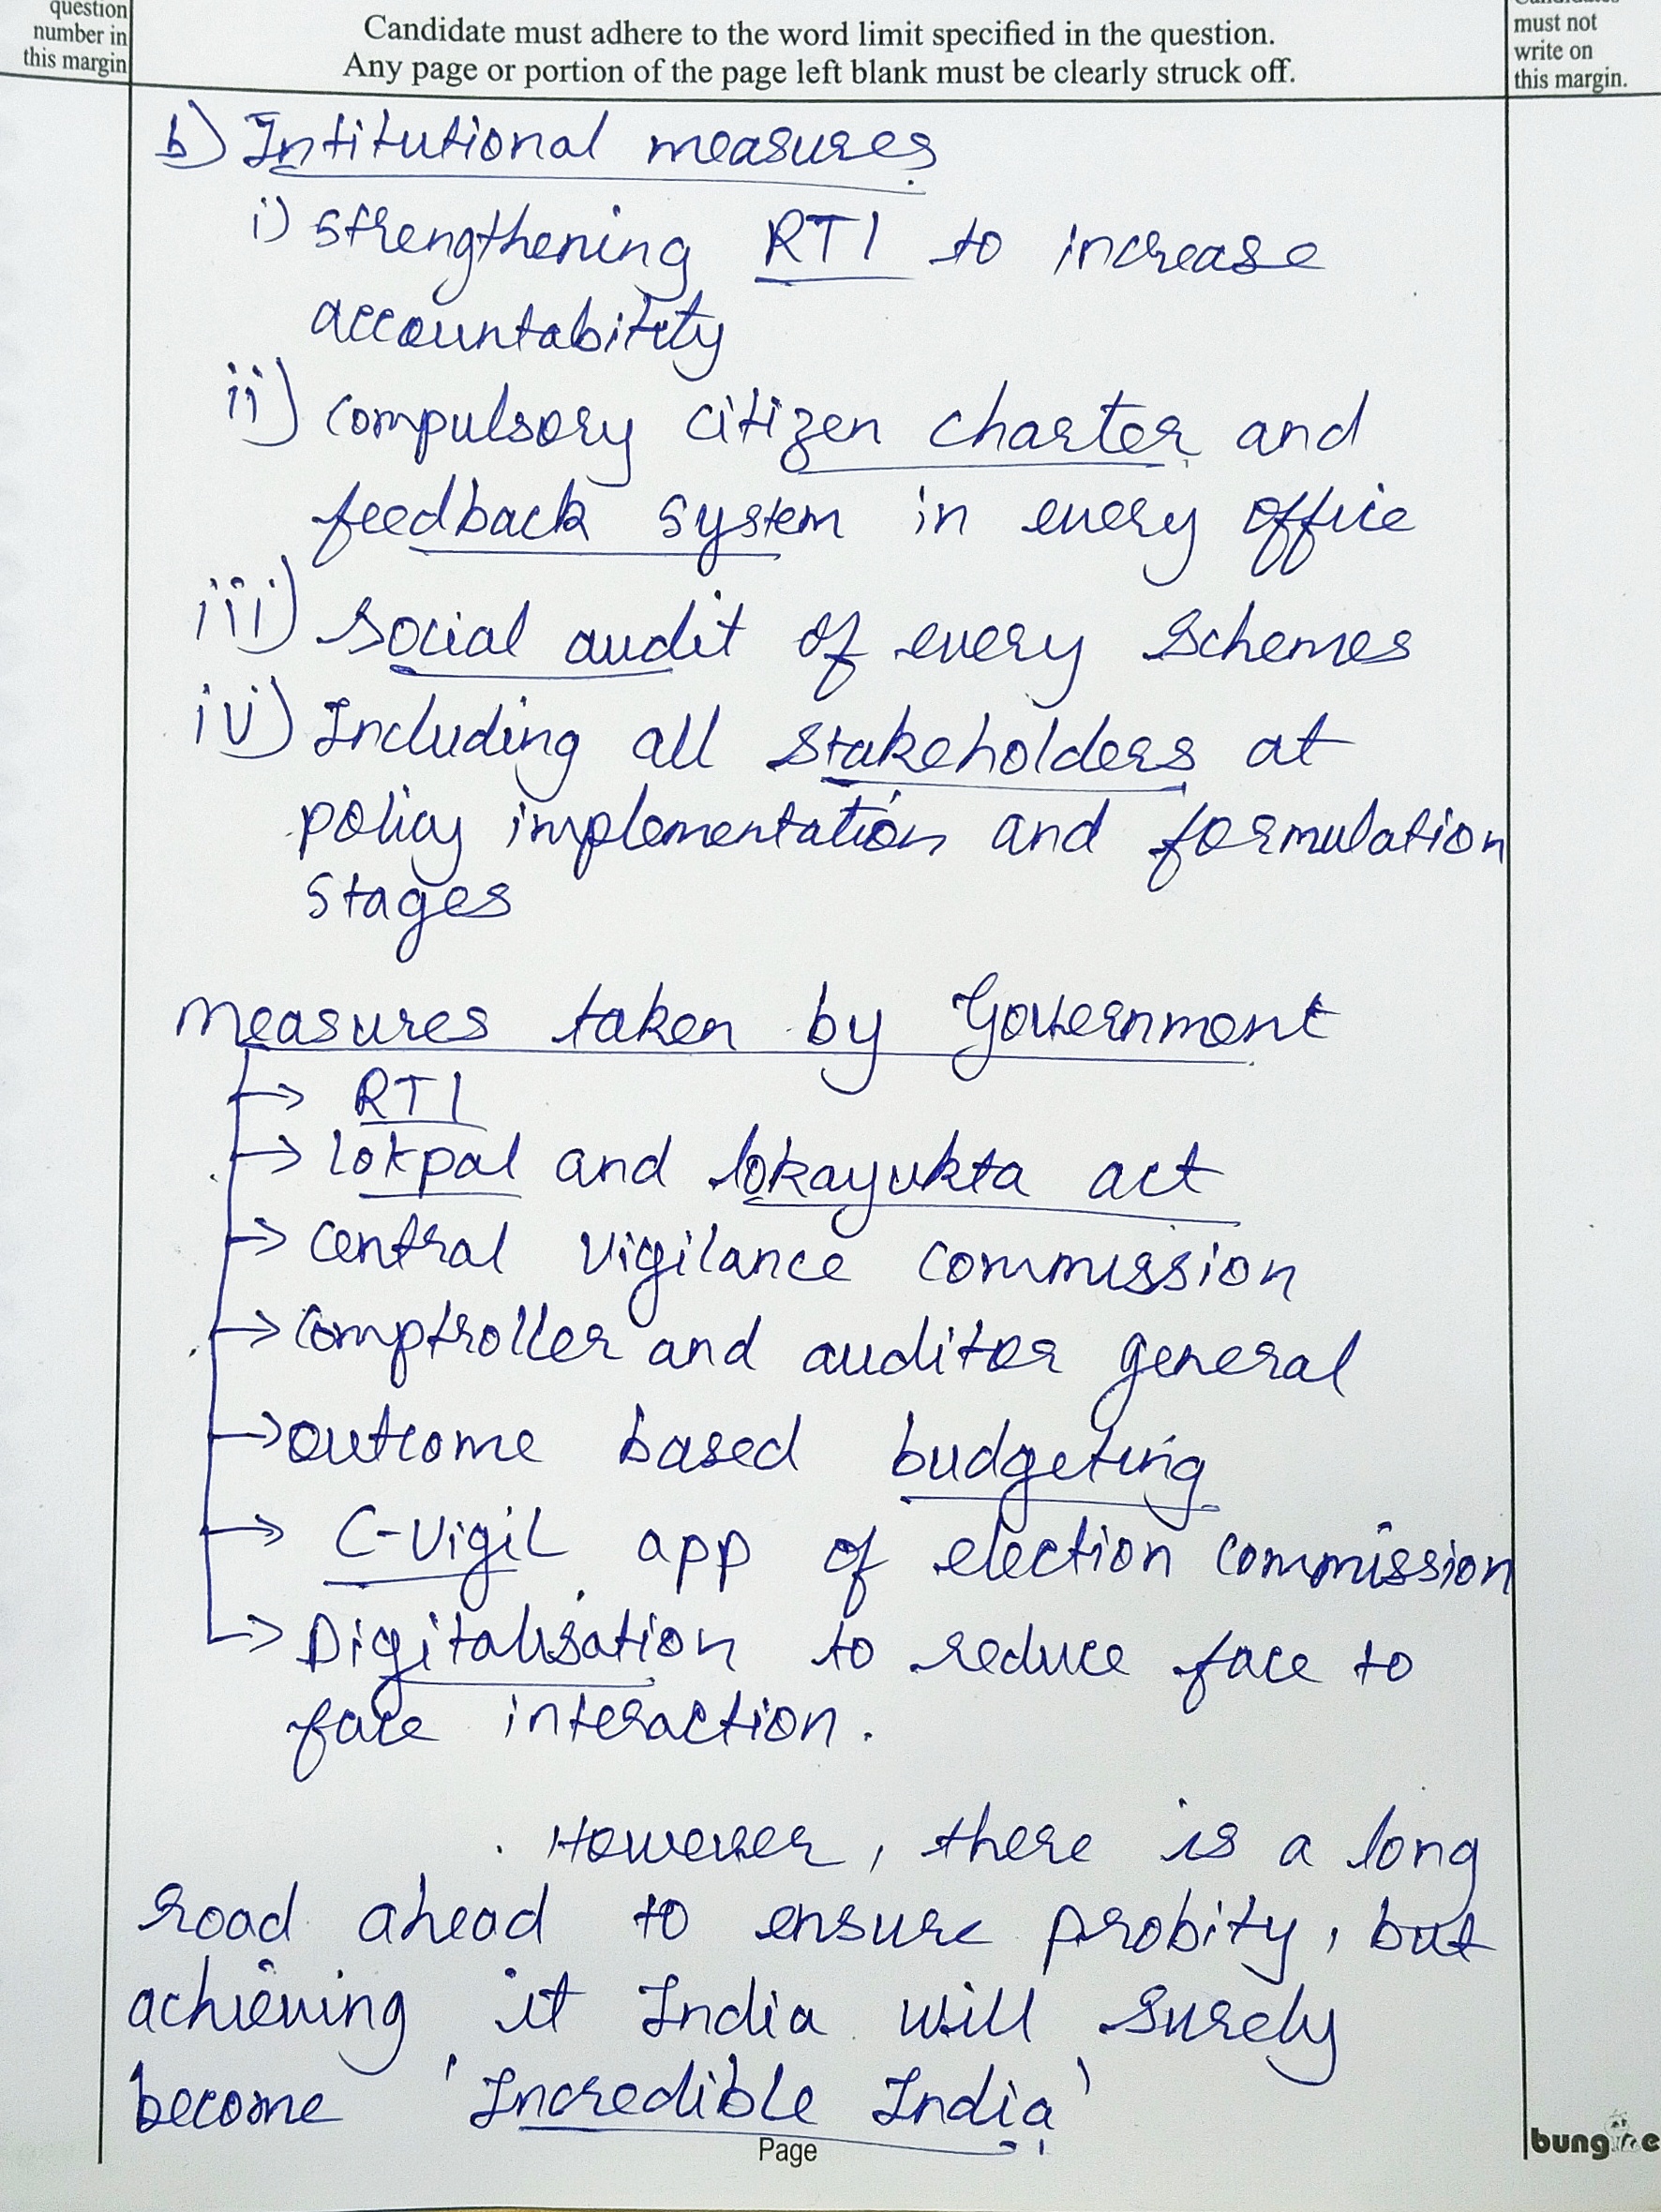 question
number in
this margin
Candidate must adhere to the word limit specified in the question.
Any page or portion of the page left blank must be clearly struck off.
must not
write on
this margin.
b) Intitutional measures
i) Strengthening RTI to increase
accountability
ii) compulsory citizen charter and
feedback system in every office
iii) social audit of every schemes
iv) Including all stakeholders at
policy implementation and formulation
stages
Measures taken by Government
→ RTI
→ lokpal and lokayukta act
→ central vigilance commission
→ comptroller and auditor general
→ outcome based budgeting
→ C-Vigil app of election commission
→ Digitalisation to reduce face to
face interaction.
However, there is a long
road ahead to ensure probity, but
achieving it India will surely
become 'Incredible India'
Page